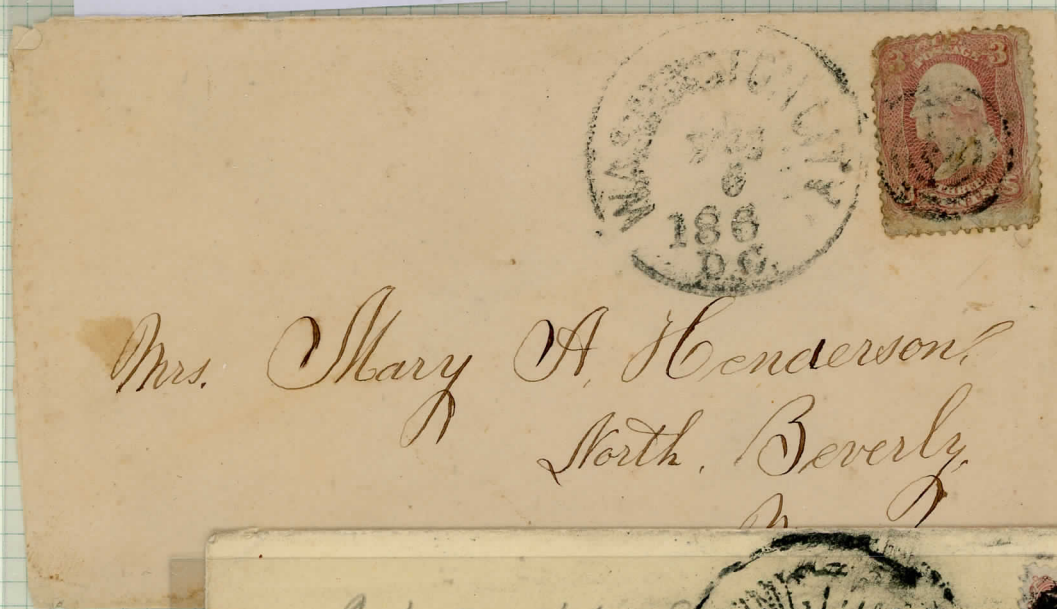 3 3
WASHINGTON CITY
6
186
D.C.
Mrs. Mary A. Henderson,
North. Beverly,